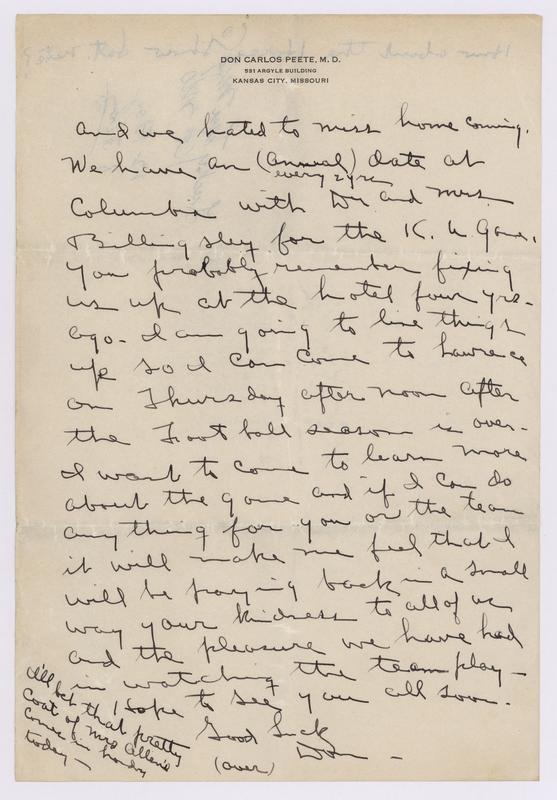 DON CARLOS PEETE, M. D.
531 ARGYLE BUILDING
KANSAS CITY, MISSOURI
and we hated to miss home coming.
We have an (annual) date at
every 2 yrs
Columbia with Dr and Mrs.
Billingsley for the K. U Game.
You probably remember fixing
us up at the hotel four yrs.
ago. I am going to line things
up so I can come to Lawrence
on Thursday after noon after
the Foot ball season is over.
I want to come to learn more
about the game and if I can do
any thing for you or the team
it will make me feel that I
will be paying back in a small
way your kindness to all of us
and the pleasure we have had
in watching the team play—
I hope to see you all soon.
Good Luck
Don —
(over)
I'll bet that pretty
coat of Mrs Allen's
comes in handy
today—